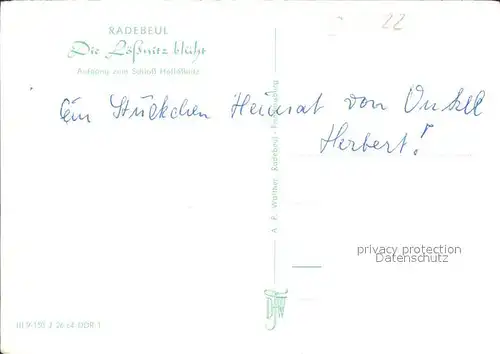 22
RADEBEUL
Die Lößnitz blüht
Aufgang zum Schloß Hoflößnitz
Ein Stückchen Heimat von Onkel
Herbert!
A. P. Walther, Radebeul
privacy protection
Datenschutz
III 9 150 J 26 64 DDR 1